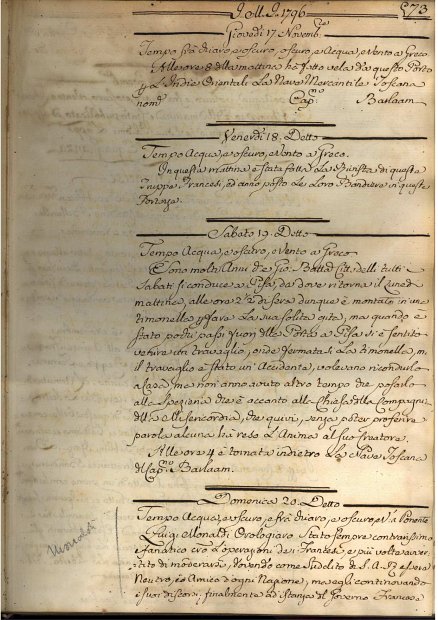 J. M. J. 1796
573
Giovedì 17 Novemb.
Tempo frà chiaro, e oscuro, oscuro, e Acqua, e Vento a Greco.
Alle ore 8 della mattina hà fatto vela da questo Porto
p. L'Indie Orientali La Nave Mercantile Toscana
nom. Cap. Barlaam.
Venerdì 18. Detto
Tempo Acqua, e oscuro, e Vento a Greco.
In questa mattina è stata fatta La Rivista di queste
Truppe Francesi, ed anno posto Le Loro Bandiere in queste
Fortezze.
Sabato 19. Detto
Tempo Acqua, e oscuro, e Vento a Greco
Sono molti Anni che Gio. Batta tutti
Sabati si conduce a Pisa, da dove ritorna il Lunedì
mattina, alle ore 22 di sera dunque è montato in una
timonella p. fare La sua solita gita, ma quando è
stato pochi passi fuori della Porta a Pisa si è sentito
venire un travaglio, onde fermatasi La timonella,
il travaglio è stato un' Accidente, volevano ricondurlo
a Casa, ma non anno avuto altro tempo che posarlo
alla Spezieria che è accanto alla Chiesa della Compagnia
della Misericordia, che quivi, senza poter proferire
parola alcuna hà reso L'Anima al suo Creatore.
Alle ore 4 è tornata indietro La Nave Toscana
del Cap. Barlaam.
Domenica 20. Detto
Tempo Acqua, e oscuro, e frà chiaro, e oscuro, e V. a Ponente
Luigi Monaldi Orologiaro Stato sempre contrarissimo
e fanatico le operazioni de' Francesi, e più volte avver-
tito di moderarsi, dovendo come Suddito di S. A. R. essere
Neutro, e Amico d'ogni Nazione, ma egli continovando
i suoi discorsi, finalmente ad istanza del Governo Francese
Monaldi